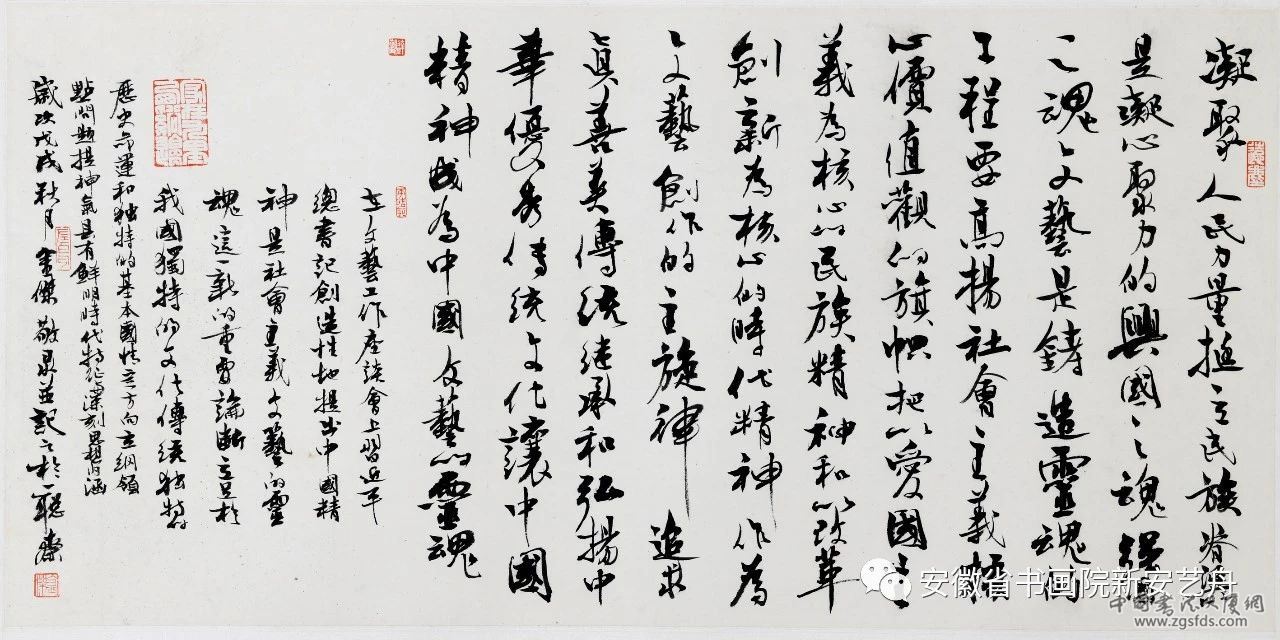 凝聚人民力量挺立民族脊梁
是凝心聚力的興國之魂强國
之魂文藝是鑄造靈魂的
工程要高揚社會主義核
心價值觀的旗幟把以愛國主
義為核心的民族精神和以改革
創新為核心的時代精神作為
文藝創作的主旋律追求
真善美傳統繼承和弘揚中
華優秀傳統文化讓中國
精神成為中國文藝的靈魂
在文藝工作座談會上習近平
總書記創造性地提出中國精
神是社會主義文藝的靈
魂這一新的重要論斷立足於
我國獨特的文化傳統独特的
歷史命運和独特的基本國情立方向立綱領
點問題提神氣具有鮮明時代特征深刻思想内涵
歲次戊戌秋月 金傑敬录並記之於聽齋
安徽省书画院新安艺舟
中国书法决凟網
www.zgsfds.com